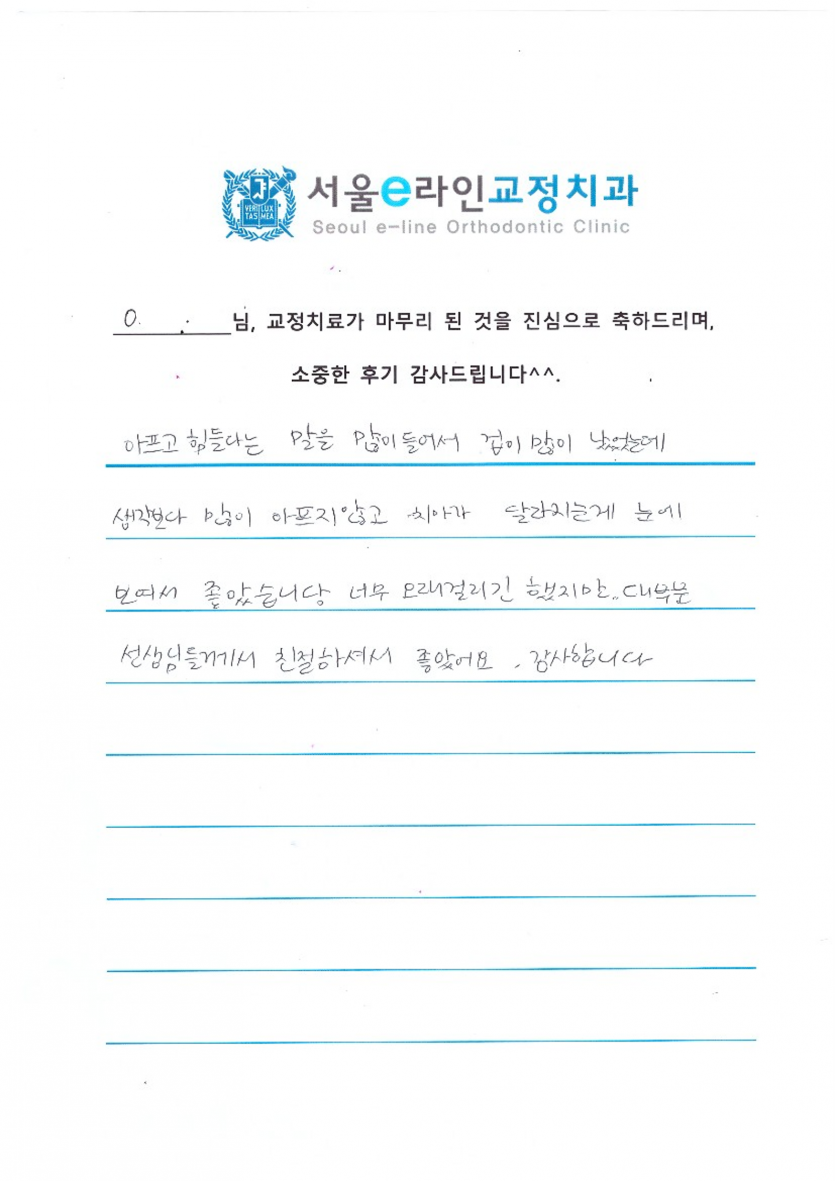 VERI LUX TAS MEA
서울e라인교정치과
Seoul e-line Orthodontic Clinic
O. 님, 교정치료가 마무리 된 것을 진심으로 축하드리며,
소중한 후기 감사드립니다^^.
아프고 힘들다는 말을 많이들어서 겁이 많이 났었는데
생각보다 많이 아프지않고 치아가 달라지는게 눈에
보여서 좋았습니당 너무 오래걸리긴 했지만.. 대부분
선생님들께서 친절하셔서 좋았어요. 감사합니다